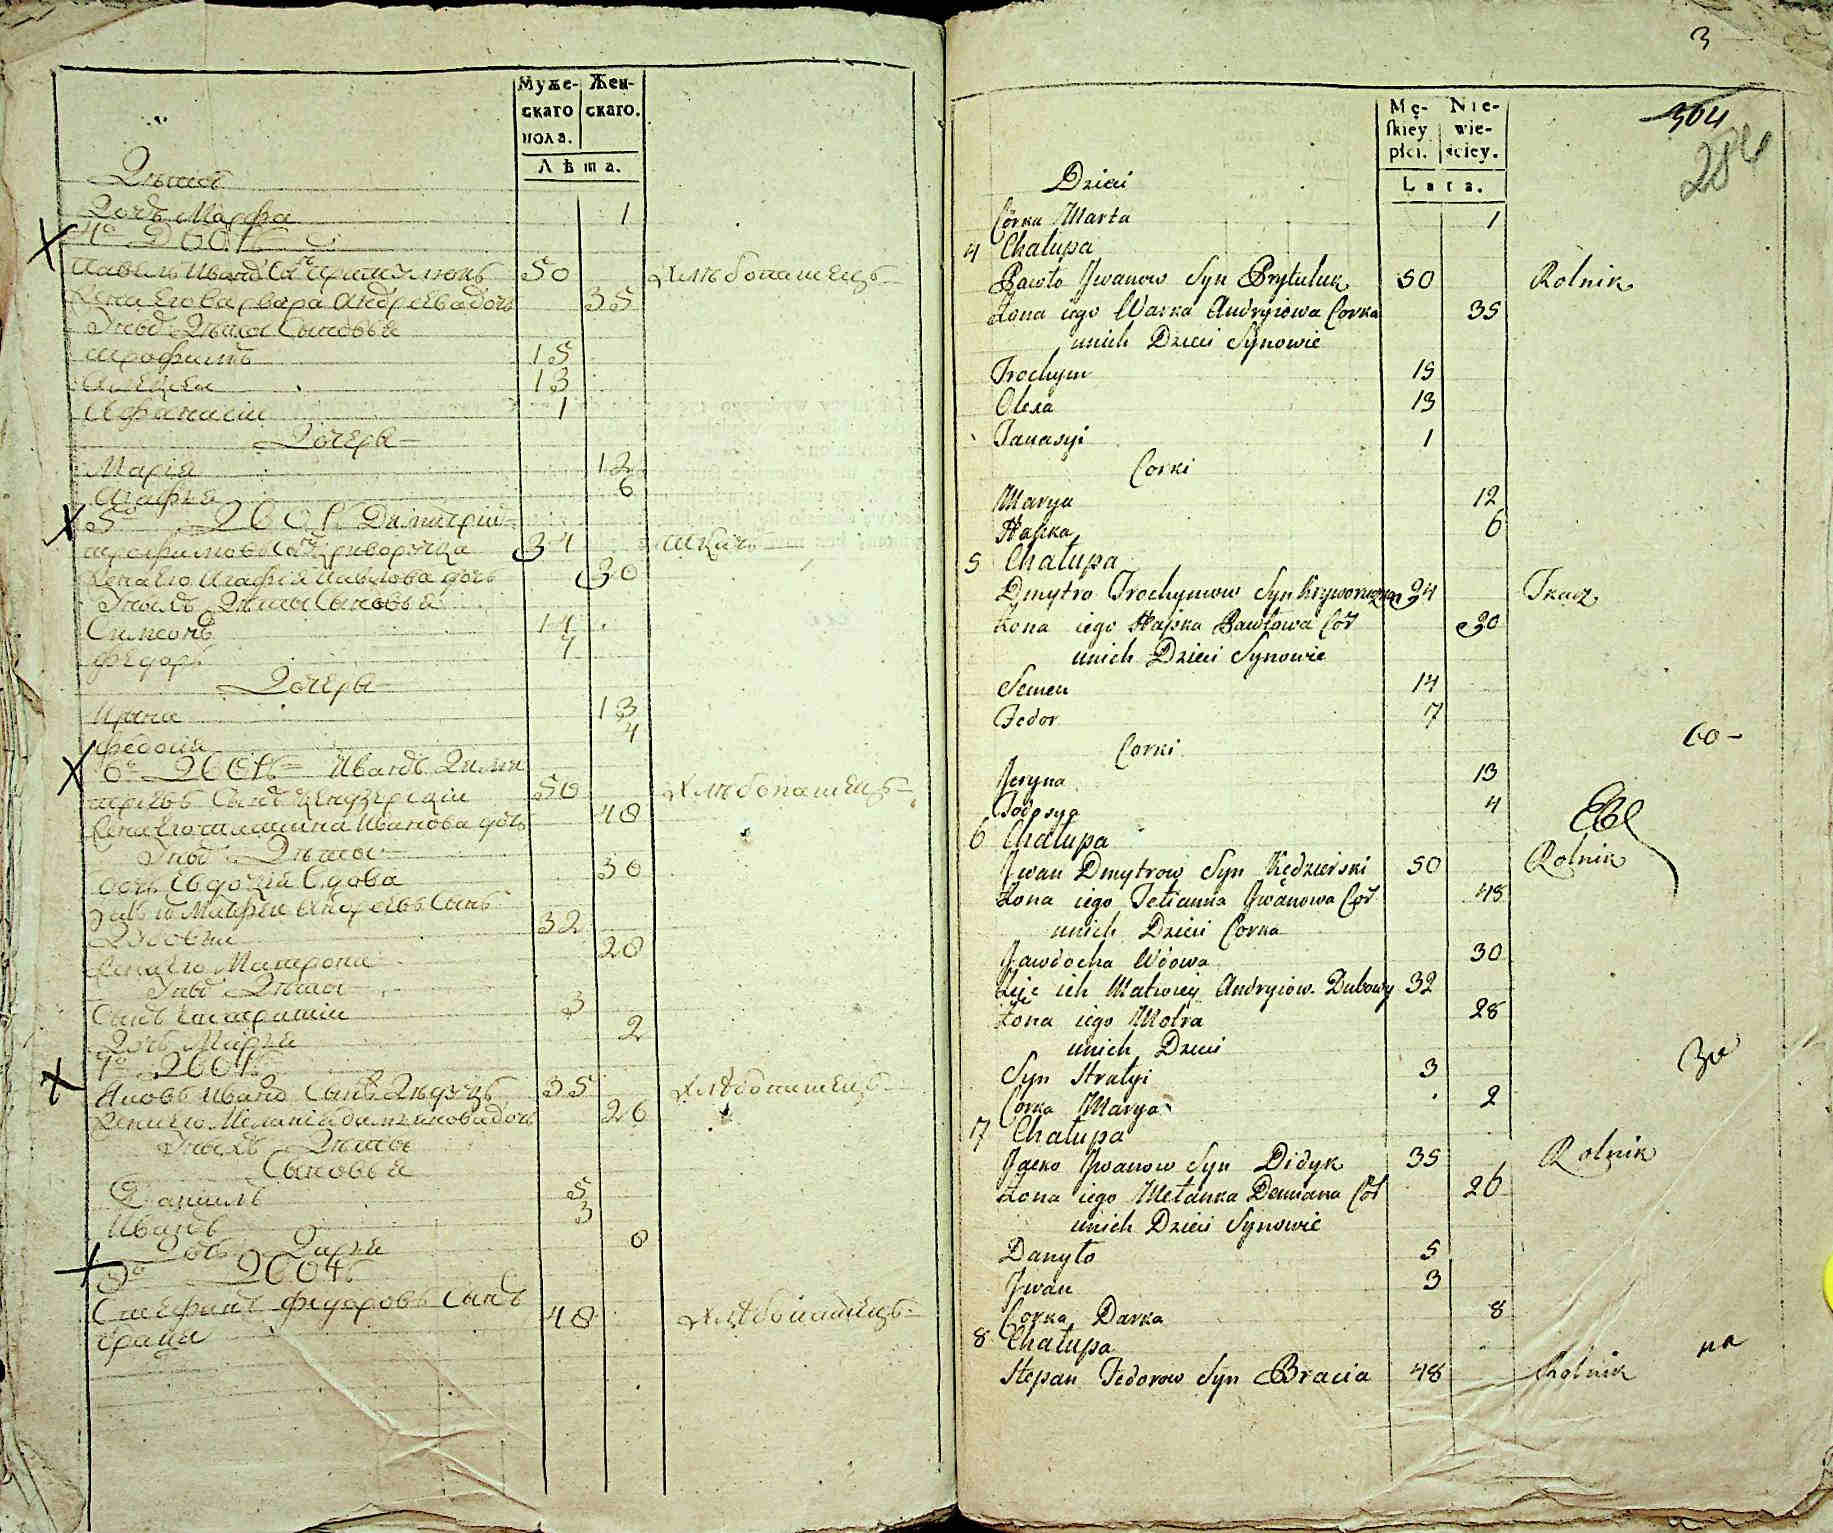 Муже-
скаго
пола.
Жен-
скаго.
Лѣта.
Дѣти
Дочь Марфа 1
4о Дворъ
Павелъ Ивановъ Сынъ 50 Хлѣбопашецъ
Жена Его Варвара Андреева дочь 35
Унихъ Дѣти Сыновья
Трофимъ 15
Алексей 13
Афанасiй 1
Дочери
Марiя 12
Агафья 6
5о Дворъ Димитрiй
Трофимовъ Сынъ Криворучка 34 Ткачъ
Жена Его Агафiя Павлова дочь 30
Унихъ Дѣти Сыновья
Симеонъ 14
Федоръ 7
Дочери
Ирина 13
Федосiя 4
6о Дворъ Иванъ Дими
трiевъ Сынъ 50 Хлѣбопашецъ
Жена Его Татiяна Иванова дочь 48
Унихъ Дѣти
дочь Евдокiя Вдова 30
Зять ихъ Матфей Андреевъ Сынъ
Дубовый 32
Жена Его Матрона 28
Унихъ Дѣти
Сынъ 3
Дочь Марiя 2
7о Дворъ
Яковъ Ивановъ Сынъ Дидукъ 35 Хлѣбопашецъ
Жена Его Меланiя Дамiянова дочь 26
Унихъ Дѣти
Сыновья
Данiилъ 5
Иванъ 3
Дочь Дарiя 8
8о Дворъ
Стефанъ Федоровъ Сынъ 48 Хлѣбопашецъ
3
Mę-
skiey
płci.
Nie-
wie-
ściey.
Lata.
304
284
Dzieci
Córka Marta 1
4 Chałupa
Pawło Jwanow Syn Prytuluk 50 Rolnik
Żona iego Warka Andryiowa Corka 35
unich Dzieci Synowie
Trochym 15
Olexa 13
Tanasyi 1
Corki
Marya 12
Hapka 6
5 Chałupa
Dmytro Trochymow Syn Kryworuczka 34 Tkacz
Żona iego Hapka Pawłowa Cór 30
unich Dzieci Synowie
Semen 14
Fedor 7
Corki
Jryna 13
Fedosya 4
6 Chałupa
Jwan Dmytrow Syn Kędzierski 50 Rolnik
Żona iego Tetianna Jwanowa Cór 48
unich Dzieci Corka
Jawdocha Wdowa 30
Zięć ich Matwiey Andryiow. Dubowy 32
Żona iego Motra 28
unich Dzieci
Syn Stratyi 3
Corka Marya 2
7 Chałupa
Jacko Jwanow Syn Didyk 35 Rolnik
Żona iego Mełanka Demiana Cór 26
unich Dzieci Synowie
Danyło 5
Jwan 3
Corka Darka 8
8 Chałupa
Stepan Fedorow Syn Bracia 48 Rolnik